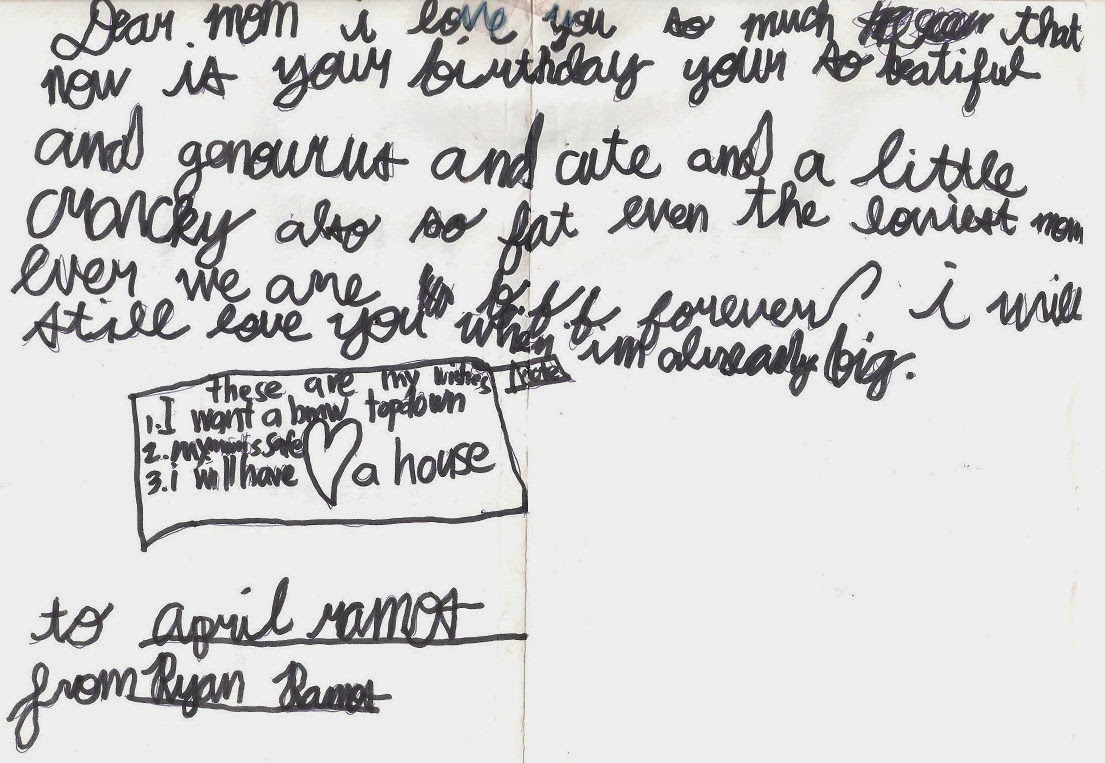 Dear mom i love you so much that
now is your birthday your so beatiful
and genourus and cute and a little
crancky also so fat even the loviest mom
ever we are b.f.f. forever i will
still love you when im already big.
these are my wishes
note
1. I want a topdown
2. my safe
3. i will have a house
to april ramos
from Ryan Ramos